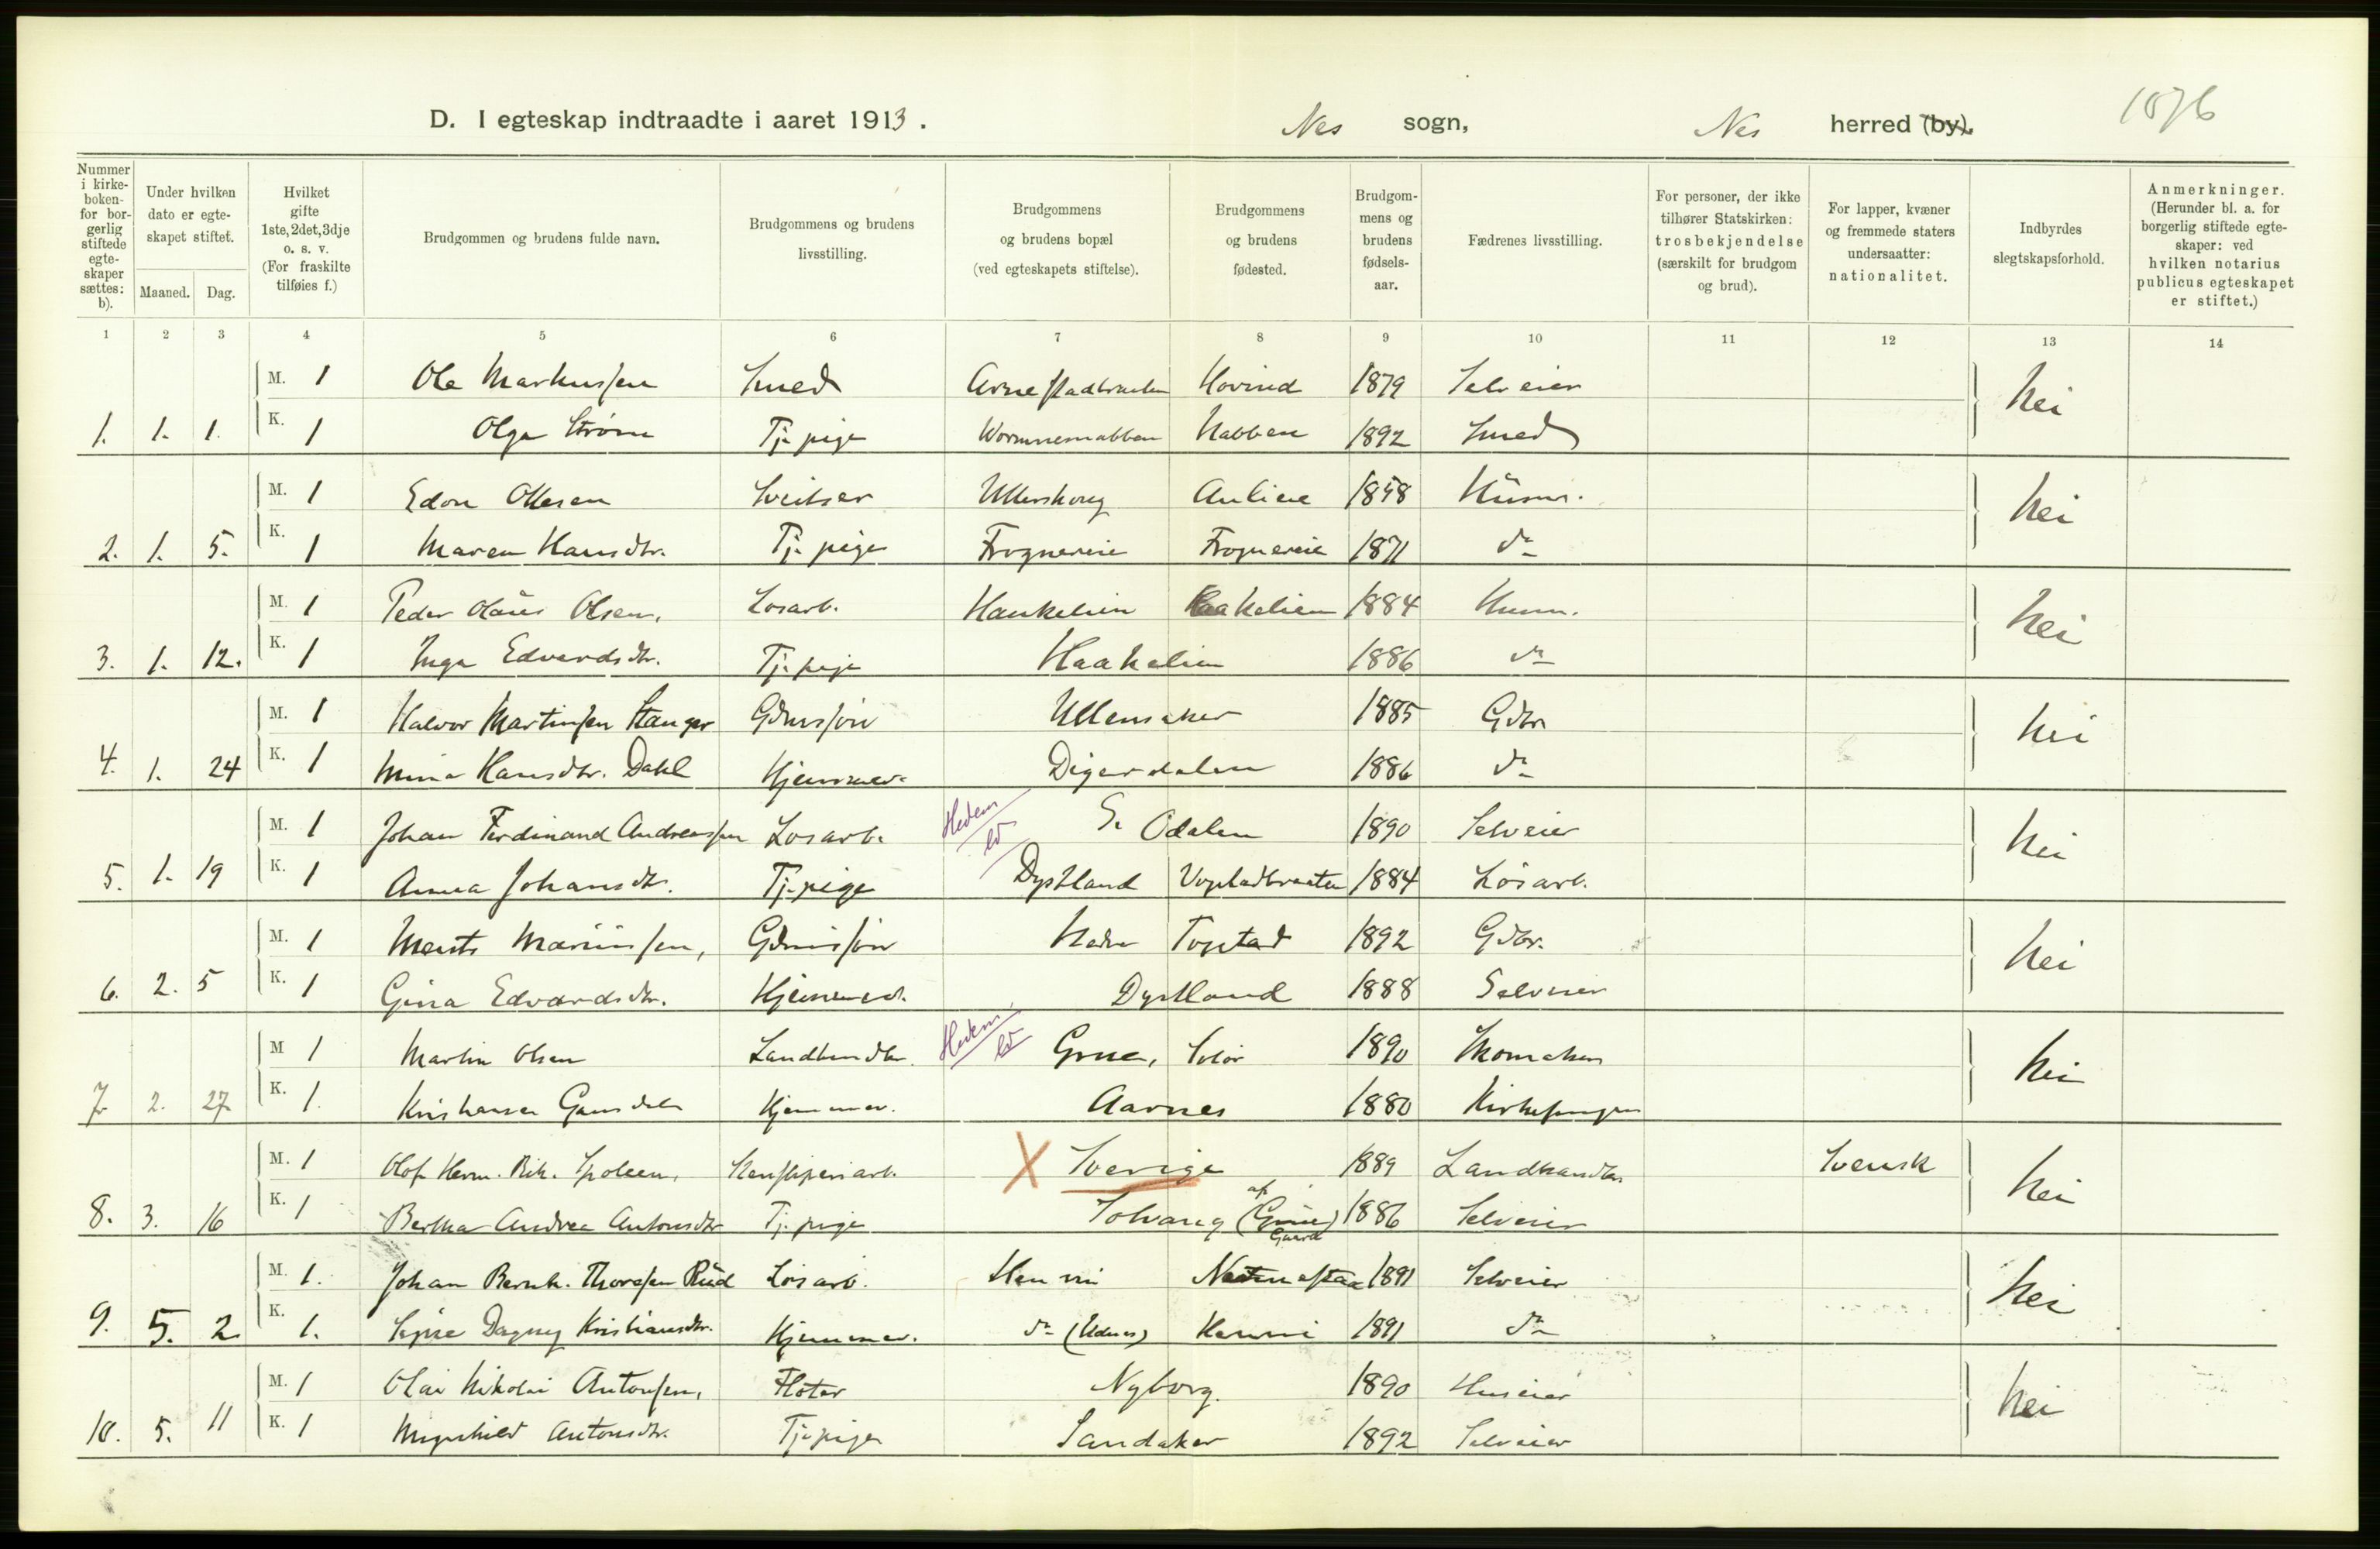 1876
D. I egteskap indtraadte i aaret 1913. Nes sogn, Nes herred (by).
Nummer i kirkeboken for borgerlig stiftede egteskaper sættes: b).
Under hvilken dato er egteskapet stiftet.
Maaned. Dag.
Hvilket gifte 1ste, 2det, 3dje o. s. v. (For fraskilte tilføies f.)
Brudgommen og brudens fulde navn.
Brudgommens og brudens livsstilling.
Brudgommens og brudens bopæl (ved egteskapets stiftelse).
Brudgommens og brudens fødested.
Brudgommens og brudens fødselsaar.
Fædrenes livsstilling.
For personer, der ikke tilhører Statskirken: trosbekjendelse (særskilt for brudgom og brud).
For lapper, kvæner og fremmede staters undersaatter: nationalitet.
Indbyrdes slegtskapsforhold.
Anmerkninger. (Herunder bl. a. for borgerlig stiftede egteskaper: ved hvilken notarius publicus egteskapet er stiftet.)
1 2 3 4 5 6 7 8 9 10 11 12 13 14
M. 1 Ole Markussen Smed Hovind 1879 Selveier Nei
1. 1. 1. K. 1 Olga Strøm Tj. pige Nabben 1892 Smed
M. 1 Edon Olsen Sveitser Ullershoug Aulien 1858 Husm. Nei
2. 1. 5. K. 1 Maren Hansdtr. Tj. pige Frognereie Frognereie 1871 do
M. 1 Peder Olaus Olsen, Løsarb. Haakelien Haakelien 1884 Husm. Nei
3. 1. 12. K. 1 Inga Edvardsdtr. Tj. pige Haakelien 1886 do
M. 1 Halvor Martinsen Stanger Gdmssøn Ullensaker 1885 Gdbr. Nei
4. 1. 24 K. 1 Mina Hansdtr. Dahl Hjemmev. Digerdalen 1886 do
M. 1 Johan Ferdinand Andreassen Løsarb. Hedem S. Odalen 1890 Selveier Nei
5. 1. 19 K. 1 Anna Johansdtr. Tj. pige Dystland 1884 Løsarb.
M. 1 Mariussen, Gdmssøn Nedre Togstad 1892 Gdbr. Nei
6. 2. 5 K. 1 Gina Edvardsdtr. Hjemmev. Dystland 1888 Selveier
M 1 Martin Olsen Landhandler Hedem Grue, Solør 1890 Skomaker Nei
7. 2. 27 K. 1. Hjemmev. Aarnes 1880 Kirkesanger
M. 1 Olof Herm. Rik. Spoleen, X Sverige 1889 Landhandler Svensk Nei
8. 3. 16 K. 1 Bertha Andrea Antonsdtr Tj. pige Solvang 1886 Selveier
M. 1. Johan Bernh. Thoresen Rud Løsarb. Henni 1891 Selveier Nei
9. 5. 2. K. 1. Signe Dagny Kristiansdtr. Hjemmev. do (Udnes) Henni 1891 do
M. 1 Olai Nikolai Antonsen, Fløter Nyborg. 1890 Huseier Nei
10. 5. 11 K. 1 Antonsdtr. Tj. pige Sandaker 1892 Selveier